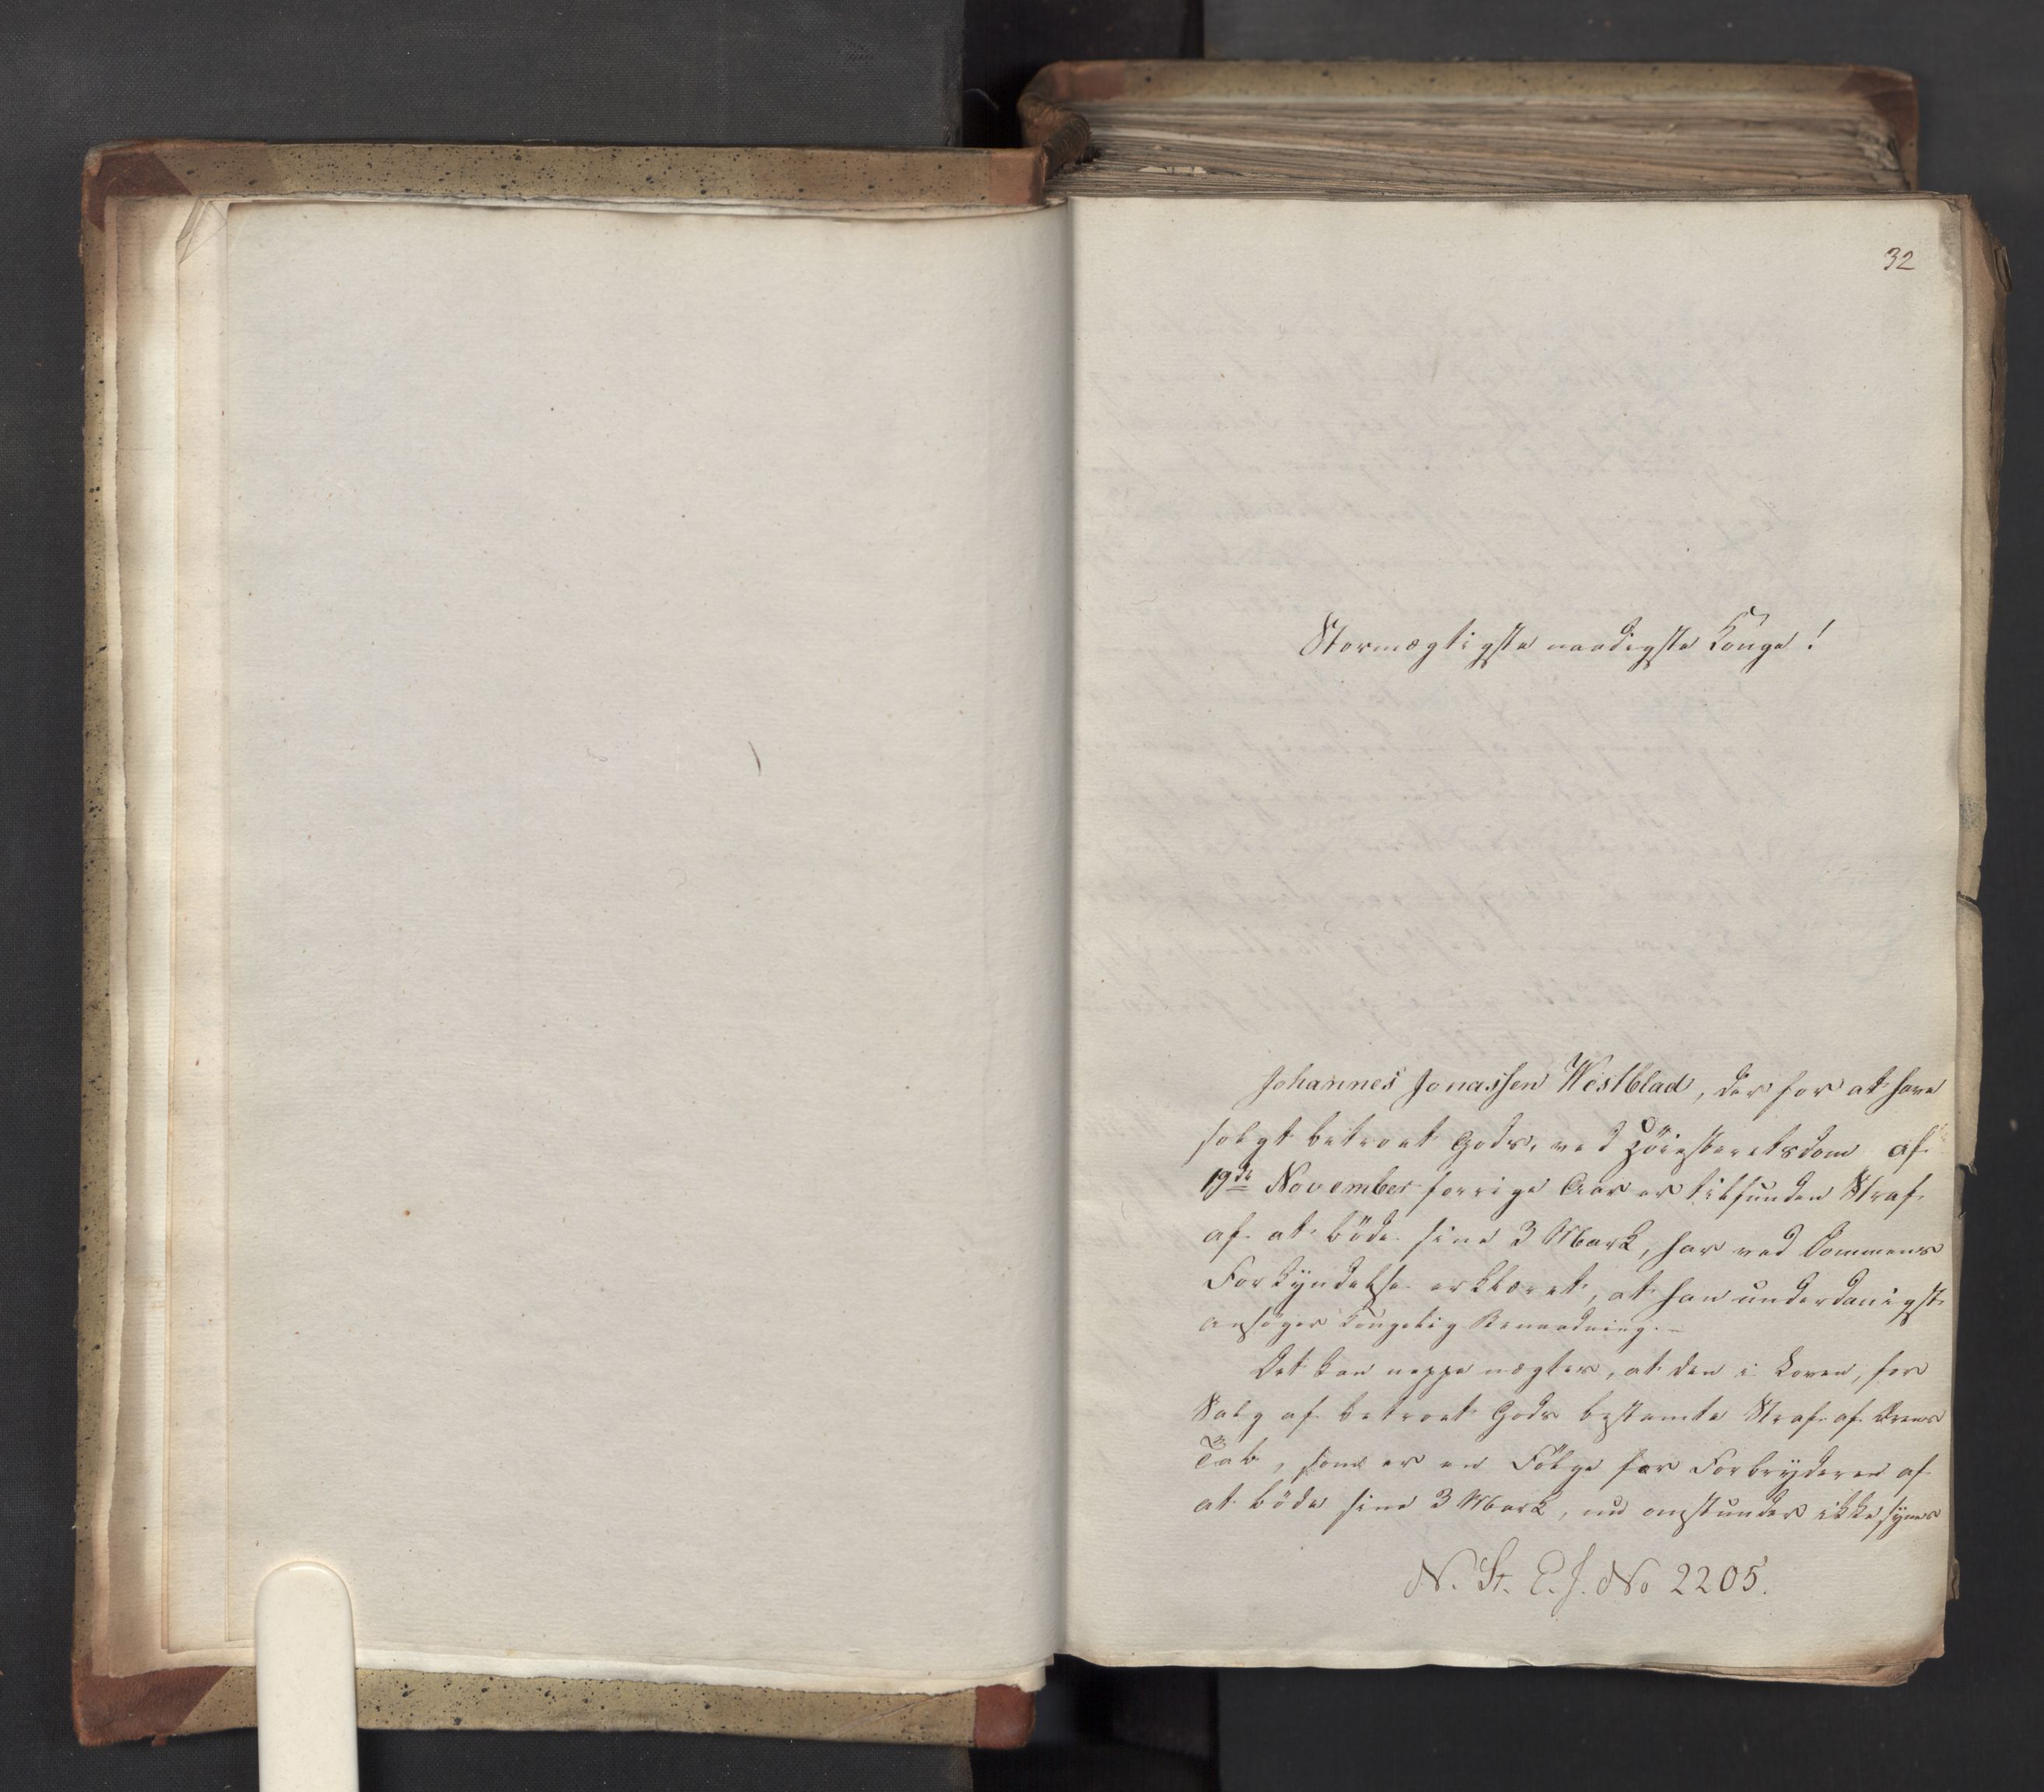 32
Stormægtigste naadigste Konge!
Johannes Jonassen Westblad, der for at have
solgt betroet Gods, ved Höiesteretsdom af
19de November forrige Aar er tilfunden Straf
af at böde sine 3 Mark, har ved Dommens
Forkyndelse erklæret, at han underdanigst
ansöger Kongelig Benaadning.-
Det kan neppe nægtes, at den i Loven, for
Salg af betroet Gods bestemte Straf af Ærens
Tab, som er en Fölge for Forbryderen af
at böde sine 3 Mark, nu omstunder ikke synes
N. St. E. J. No 2205.